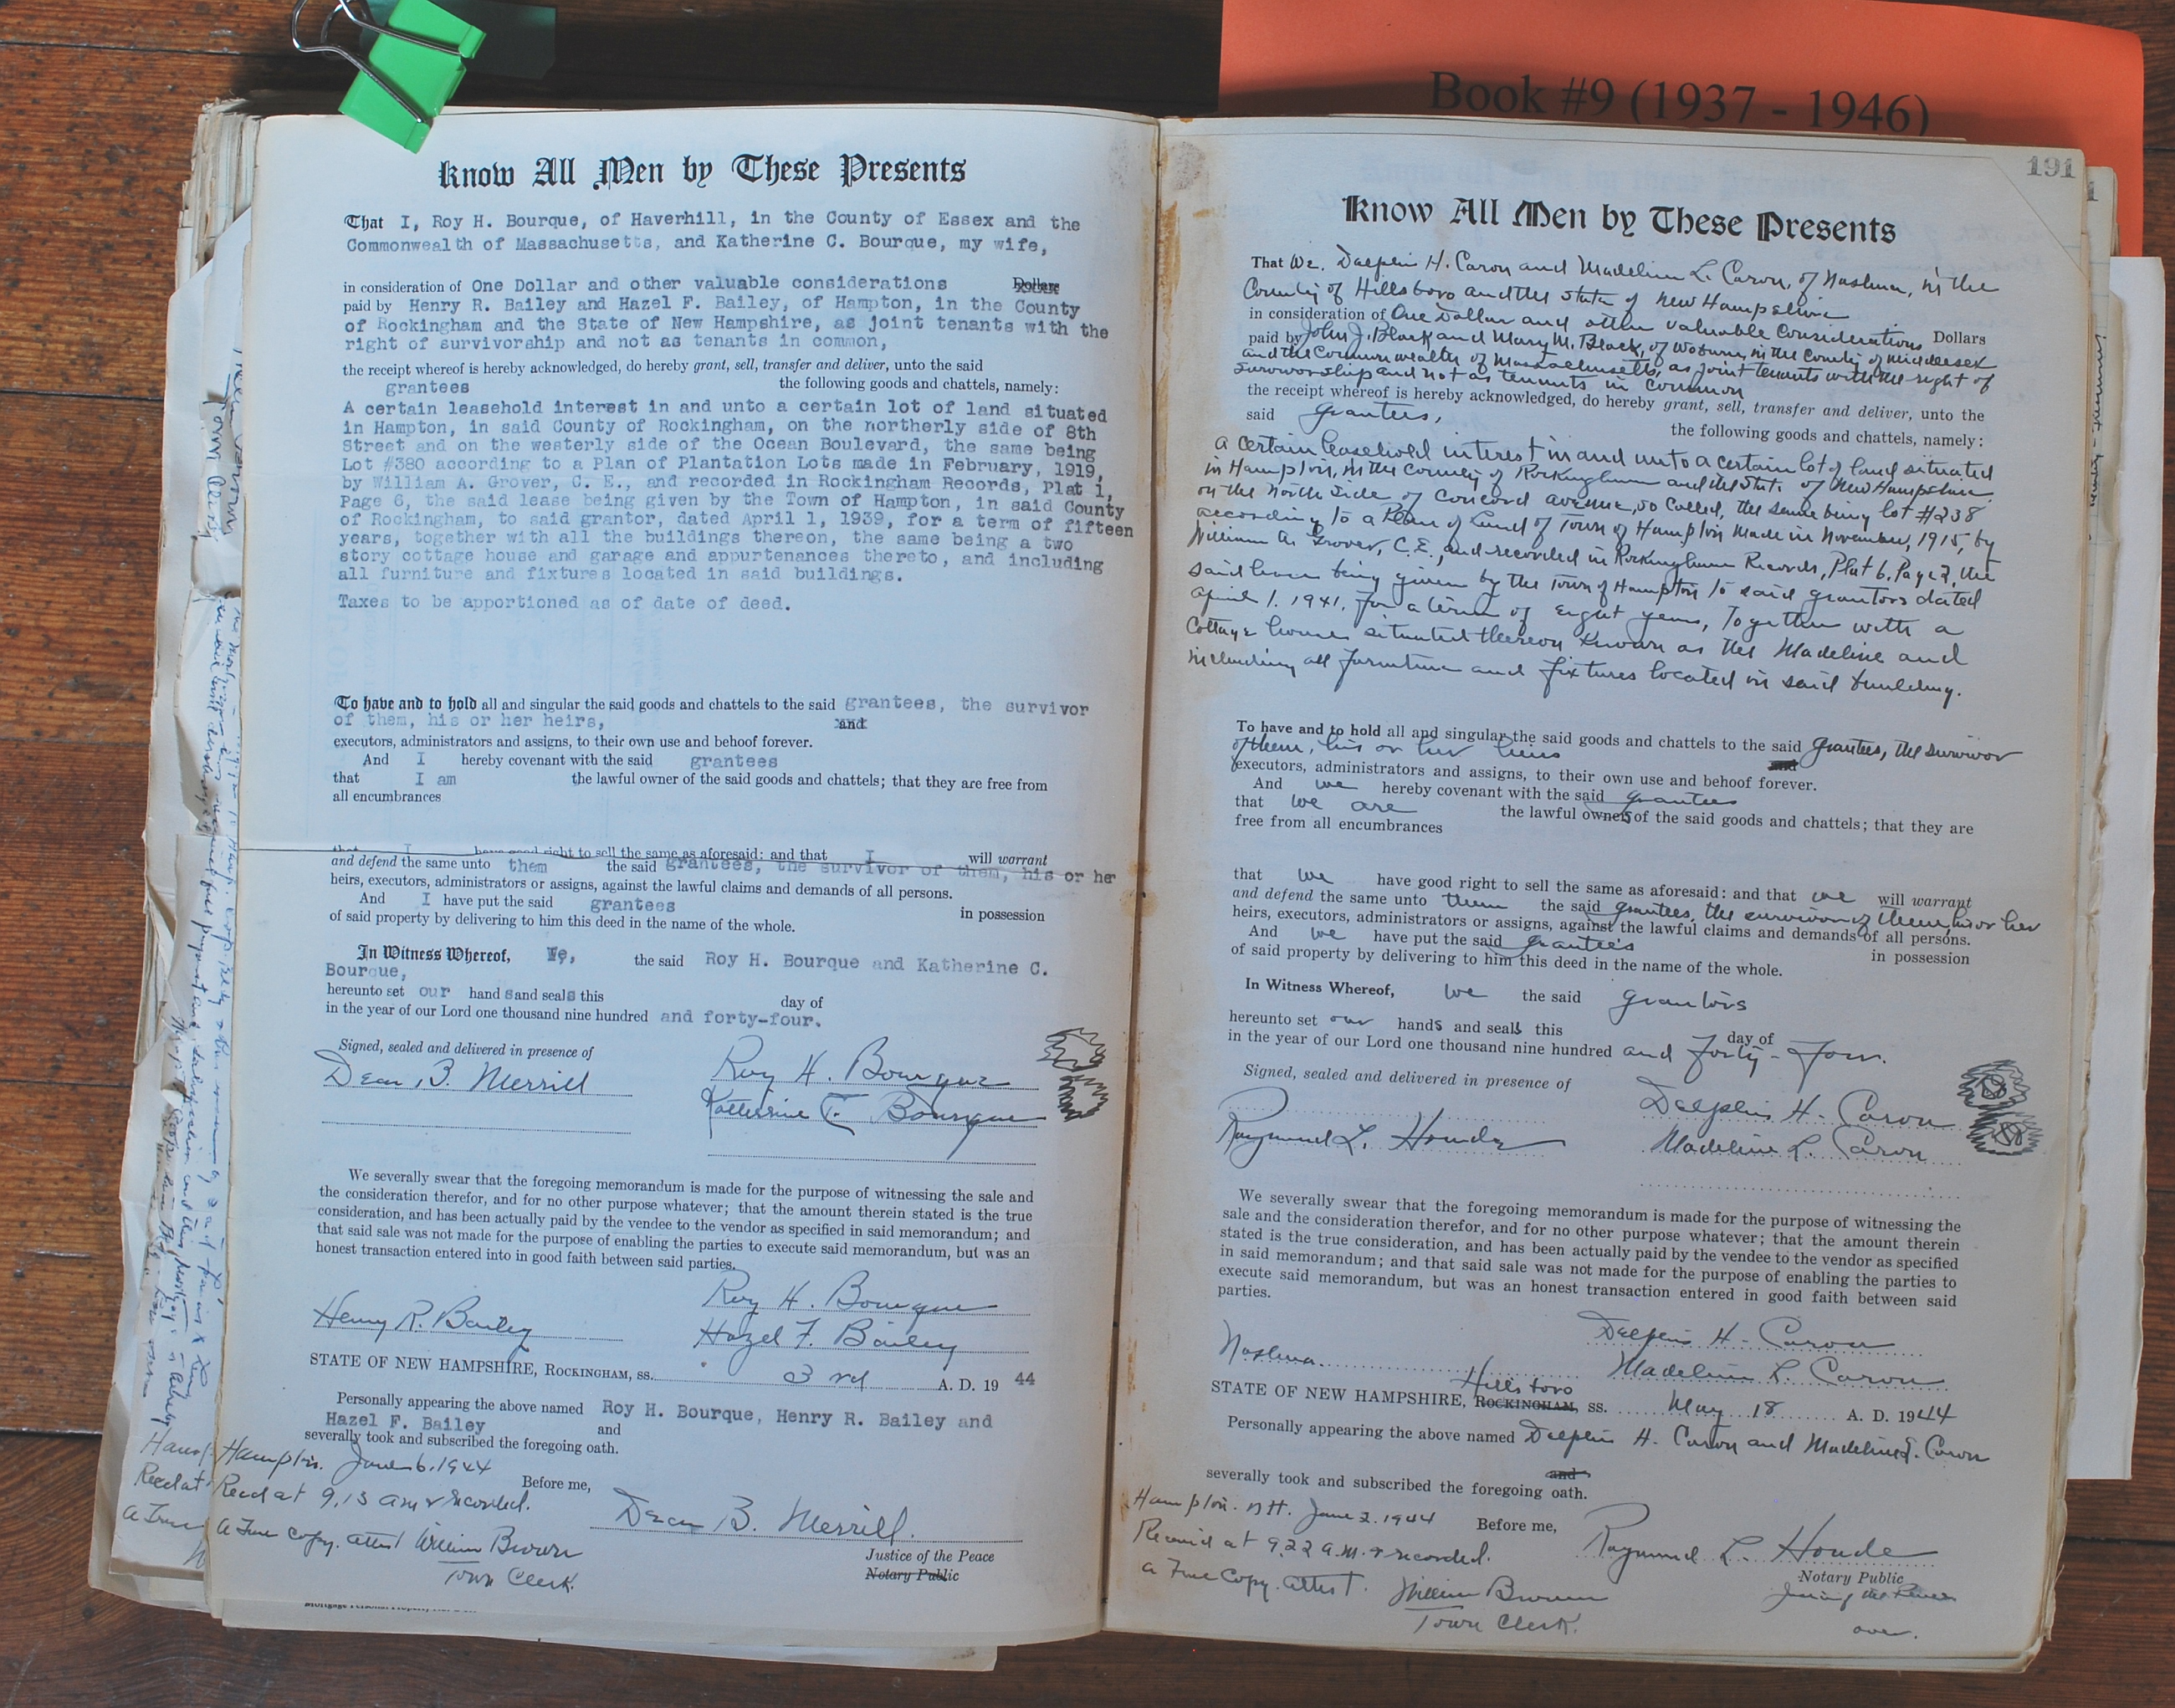 Book #9 (1937 - 1946)
Know All Men by These Presents
That I, Roy H. Bourque, of Haverhill, in the County of Essex and the
Commonwealth of Massachusetts, and Katherine C. Bourque, my wife,
in consideration of One Dollar and other valuable considerations Dollars
paid by Henry R. Bailey and Hazel F. Bailey, of Hampton, in the County
of Rockingham and the State of New Hampshire, as joint tenants with the
right of survivorship and not as tenants in common,
the receipt whereof is hereby acknowledged, do hereby grant, sell, transfer and deliver, unto the said
grantees the following goods and chattels, namely:
A certain leasehold interest in and unto a certain lot of land situated
in Hampton, in said County of Rockingham, on the northerly side of 8th
Street and on the westerly side of the Ocean Boulevard, the same being
Lot #380 according to a Plan of Plantation Lots made in February, 1919,
by William A. Grover, C. E., and recorded in Rockingham Records, Plat 1,
Page 6, the said lease being given by the Town of Hampton, in said County
of Rockingham, to said grantor, dated April 1, 1939, for a term of fifteen
years, together with all the buildings thereon, the same being a two
story cottage house and garage and appurtenances thereto, and including
all furniture and fixtures located in said buildings.
Taxes to be apportioned as of date of deed.
To have and to hold all and singular the said goods and chattels to the said grantees, the survivor
of them, his or her heirs, and
executors, administrators and assigns, to their own use and behoof forever.
And I hereby covenant with the said grantees
that I am the lawful owner of the said goods and chattels; that they are free from
all encumbrances
that I have good right to sell the same as aforesaid: and that I will warrant
and defend the same unto them the said grantees, the survivor of them, his or her
heirs, executors, administrators or assigns, against the lawful claims and demands of all persons.
And I have put the said grantees in possession
of said property by delivering to him this deed in the name of the whole.
In Witness Whereof, We, the said Roy H. Bourque and Katherine C.
Bourque,
hereunto set our hand s and seals this day of
in the year of our Lord one thousand nine hundred and forty-four.
Signed, sealed and delivered in presence of
Dean B. Merrill Roy H. Bourque
Katherine C. Bourque
We severally swear that the foregoing memorandum is made for the purpose of witnessing the sale and
the consideration therefor, and for no other purpose whatever; that the amount therein stated is the true
consideration, and has been actually paid by the vendee to the vendor as specified in said memorandum; and
that said sale was not made for the purpose of enabling the parties to execute said memorandum, but was an
honest transaction entered into in good faith between said parties.
Roy H. Bourque
Henry R. Bailey Hazel F. Bailey
STATE OF NEW HAMPSHIRE, ROCKINGHAM, ss. 3 rd A. D. 19 44
Personally appearing the above named Roy H. Bourque, Henry R. Bailey and
Hazel F. Bailey and
severally took and subscribed the foregoing oath.
Hampton. June 6. 1944
Before me,
Recd at 9.15 am & recorded.
Dean B. Merrill.
a True Copy. attest William Brown
Town Clerk.
Justice of the Peace
Notary Public
191
Know All Men by These Presents
That We, Delphis H. Caron and Madeline L. Caron, of Nashua, in the
County of Hillsboro and the State of New Hampshire
in consideration of One Dollar and other valuable Considerations Dollars
paid by John J. Black and Mary M. Black, of Woburn, in the County of Middlesex
and the Commonwealth of Massachusetts, as joint tenants with the right of
survivorship and not as tenants in common
the receipt whereof is hereby acknowledged, do hereby grant, sell, transfer and deliver, unto the
said grantees, the following goods and chattels, namely:
a certain leasehold interest in and unto a certain lot of land situated
in Hampton, in the county of Rockingham and the State of New Hampshire,
on the North Side of Concord avenue, so called, the same being lot #238
according to a Plan of Land of Town of Hampton Made in November, 1915, by
William A. Grover, C.E., and recorded in Rockingham Records, Plat 6. Page 2, the
said lease being given by the Town of Hampton to said grantors dated
April 1. 1941, for a term of eight years, Together with a
Cottage house situated thereon known as the Madeline and
including all furniture and fixtures located in said building.
To have and to hold all and singular the said goods and chattels to the said grantees, the survivor
of them, his or her heirs and
executors, administrators and assigns, to their own use and behoof forever.
And we hereby covenant with the said grantees
that we are the lawful owners of the said goods and chattels; that they are
free from all encumbrances
that we have good right to sell the same as aforesaid: and that we will warrant
and defend the same unto them the said grantees, the survivor of them, his or her
heirs, executors, administrators or assigns, against the lawful claims and demands of all persons.
And we have put the said grantees in possession
of said property by delivering to him this deed in the name of the whole.
In Witness Whereof, we the said grantors
hereunto set our hands and seals this day of
in the year of our Lord one thousand nine hundred and forty-four.
Signed, sealed and delivered in presence of
Delphis H. Caron
Raymond L. Houde Madeline L. Caron
We severally swear that the foregoing memorandum is made for the purpose of witnessing the
sale and the consideration therefor, and for no other purpose whatever; that the amount therein
stated is the true consideration, and has been actually paid by the vendee to the vendor as specified
in said memorandum; and that said sale was not made for the purpose of enabling the parties to
execute said memorandum, but was an honest transaction entered in good faith between said
parties.
Delphis H. Caron
Nashua. Madeline L. Caron
Hillsboro
STATE OF NEW HAMPSHIRE, ROCKINGHAM, ss. May 18 A. D. 1944
Personally appearing the above named Delphis H. Caron and Madeline L. Caron
and
severally took and subscribed the foregoing oath.
Hampton. N.H. June 2. 1944 Before me,
Received at 9.22 a.m. & recorded.
Raymond L. Houde
a True Copy. attest. William Brown
Town Clerk.
Notary Public
Justice of the Peace
over.